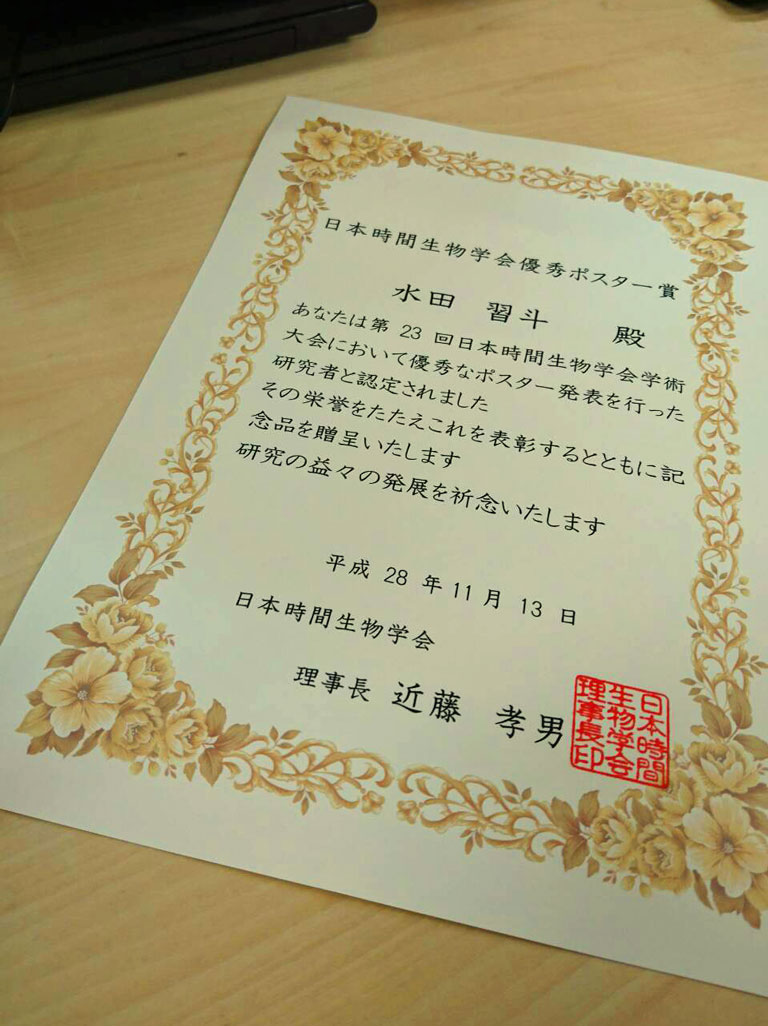 日本時間生物学会優秀ポスター賞
水田 習斗 殿
あなたは第 23 回日本時間生物学会学術
大会において優秀なポスター発表を行った
研究者と認定されました
その栄誉をたたえこれを表彰するとともに記
念品を贈呈いたします
研究の益々の発展を祈念いたします
平成 28 年 11 月 13 日
日本時間生物学会
理事長 近藤 孝男
日本時間
生物学会
理事長印